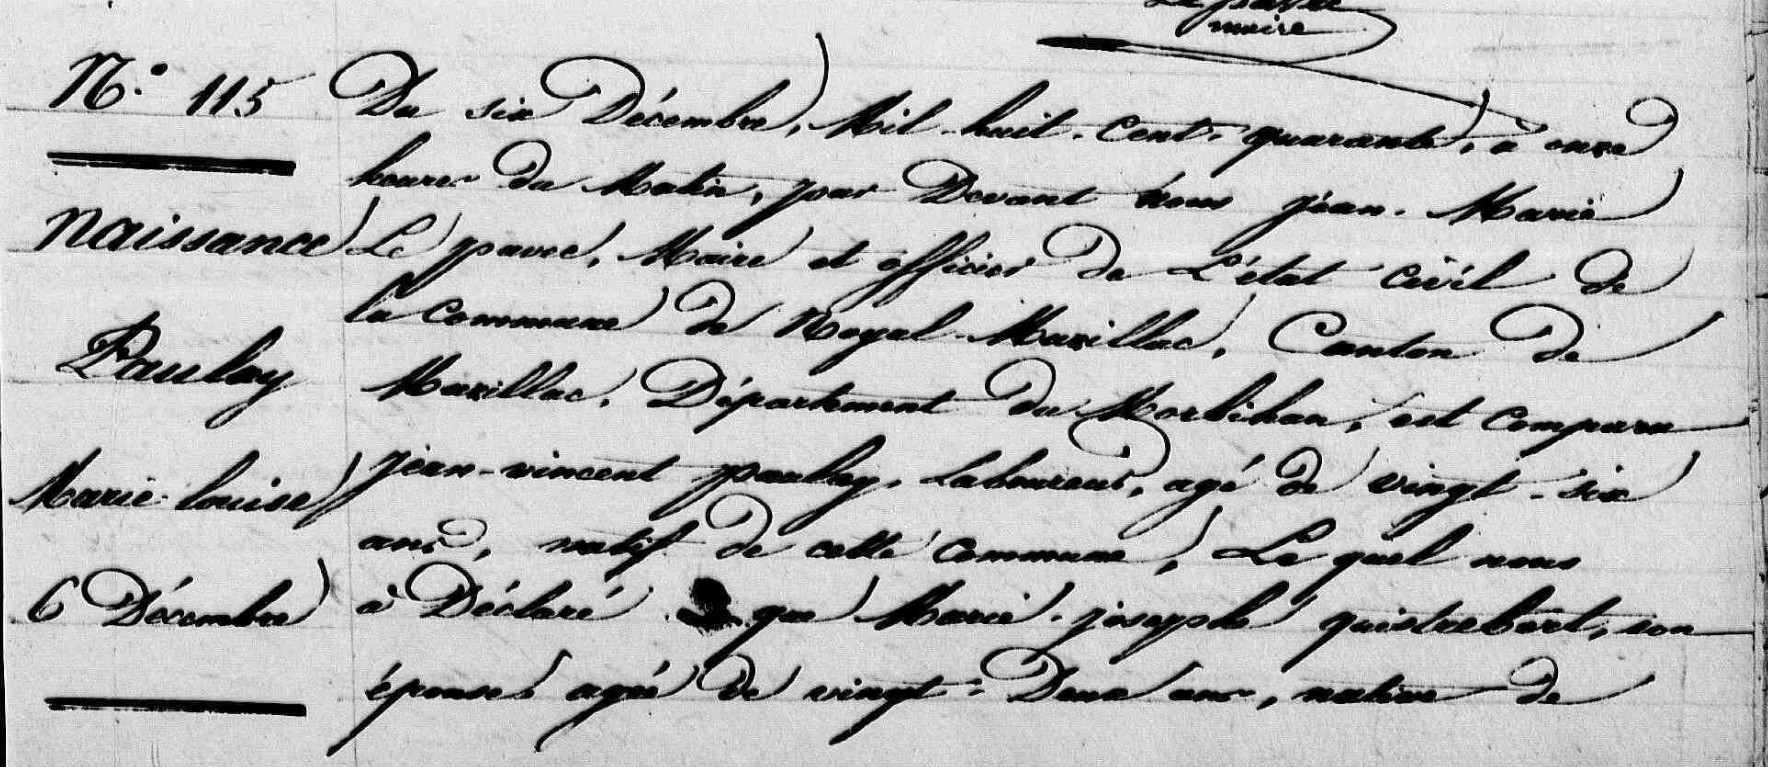 Le pavec
maire
N.° 115
Naissance
Paulay
Marie-louise
6 Décembre
Du six Décembre, Mil-huit-Cent-quarante, à onze
heures du Matin, par Devant Nous jean-Marie
Le pavec, Maire et officier de L'état Civil de
la Commune de Noyal-Muzillac, Canton de
Muzillac, Département du Morbihan, est Comparu
jean-vincent paulay, Laboureur, agé de vingt-six
ans, natif de cette Commune, Le quel nous
à Déclaré que Marie-josephe quistrebert, son
épouse agée de vingt-Deux ans, native de